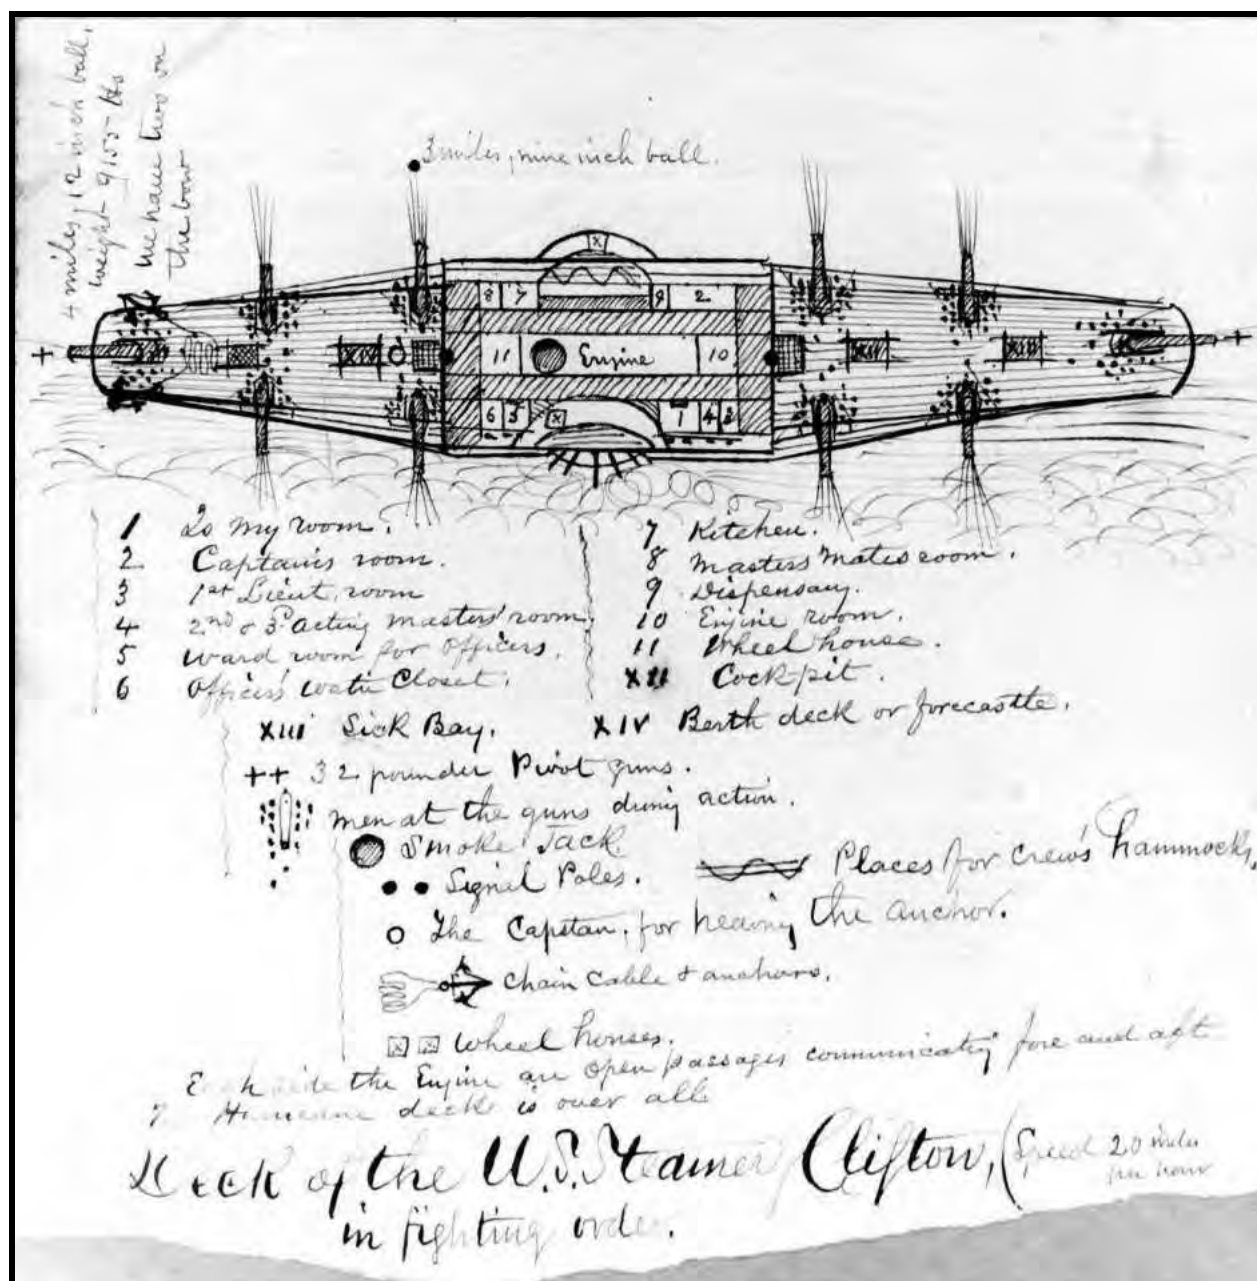 4 miles, 12 inch ball,
weight - 9155 lbs
we have two on
the bow
3 miles, nine inch ball.
X
8 7 9 2
11 Engine 10
XIV XII XIII
6 5 X 1 4 3
1 Is my room.
2 Captain's room.
3 1st Lieut. room
4 2nd & 3d Acting masters' room.
5 Ward room for officers.
6 Officers water Closet.
7 Kitchen.
8 Masters Mates room.
9 Dispensary.
10 Engine room.
11 Wheel house.
XII Cockpit.
XIII Sick Bay.
XIV Berth deck or forecastle.
++ 32 pounder Pivot guns.
men at the guns during action.
Smoke Jack.
Signal Poles.
Places for crew's hammocks.
The Capstan, for heaving the anchor.
Chain Cable & anchors.
X X Wheel houses.
Each side the Engine are open passages communicating fore and aft
Hurricane deck is over all
Deck of the U.S. Steamer Clifton, (Speed 20 miles
per hour
in fighting order.